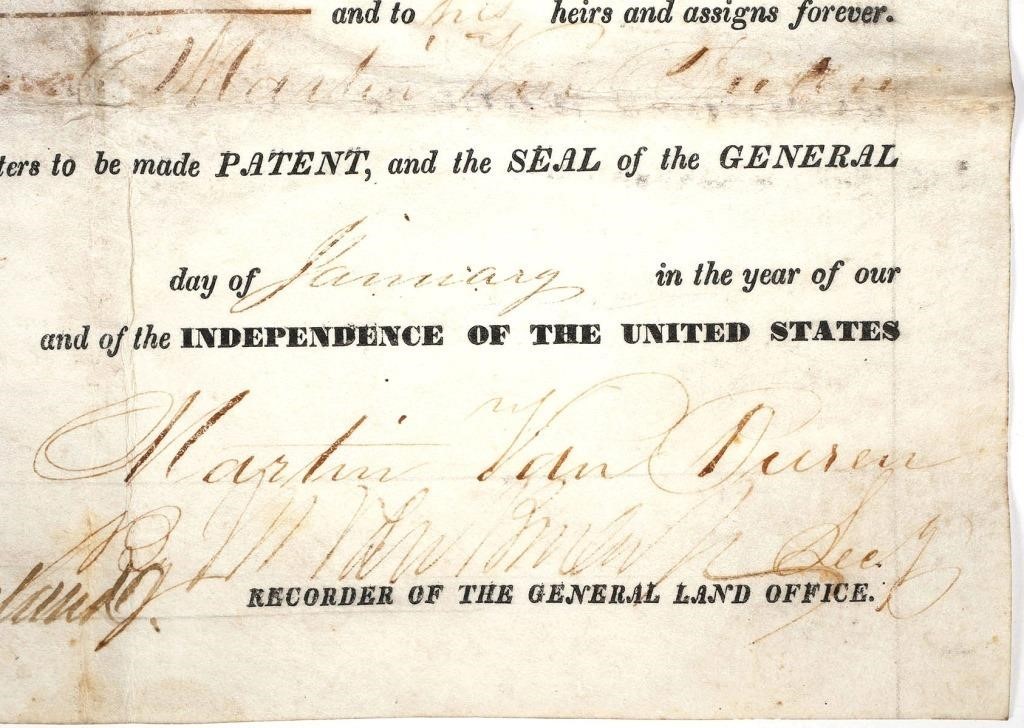 and to his heirs and assigns forever.
Martin Van Buren
ters to be made PATENT, and the SEAL of the GENERAL
day of January in the year of our
and of the INDEPENDENCE OF THE UNITED STATES
Martin Van Buren
By M Van Buren Jr Secy
RECORDER OF THE GENERAL LAND OFFICE.